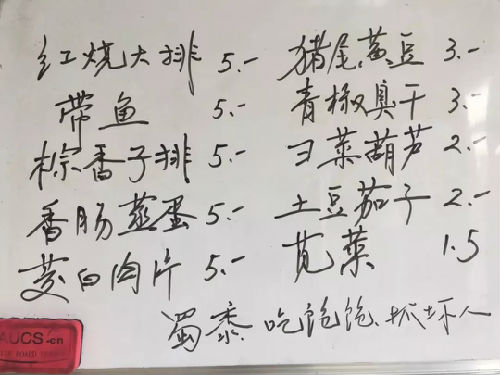 红烧大排 5.-
带鱼 5.-
棕香子排 5.-
香肠蒸蛋 5.-
茭白肉片 5.-
猪尾黄豆 3.-
青椒臭干 3.-
ヨ菜葫芦 2.-
土豆茄子 2.-
苋菜 1.5
蜀黍 吃饱饱、抓坏人
AUCS.cn